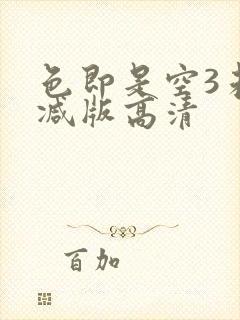 色即是空3未
减版高清
百加